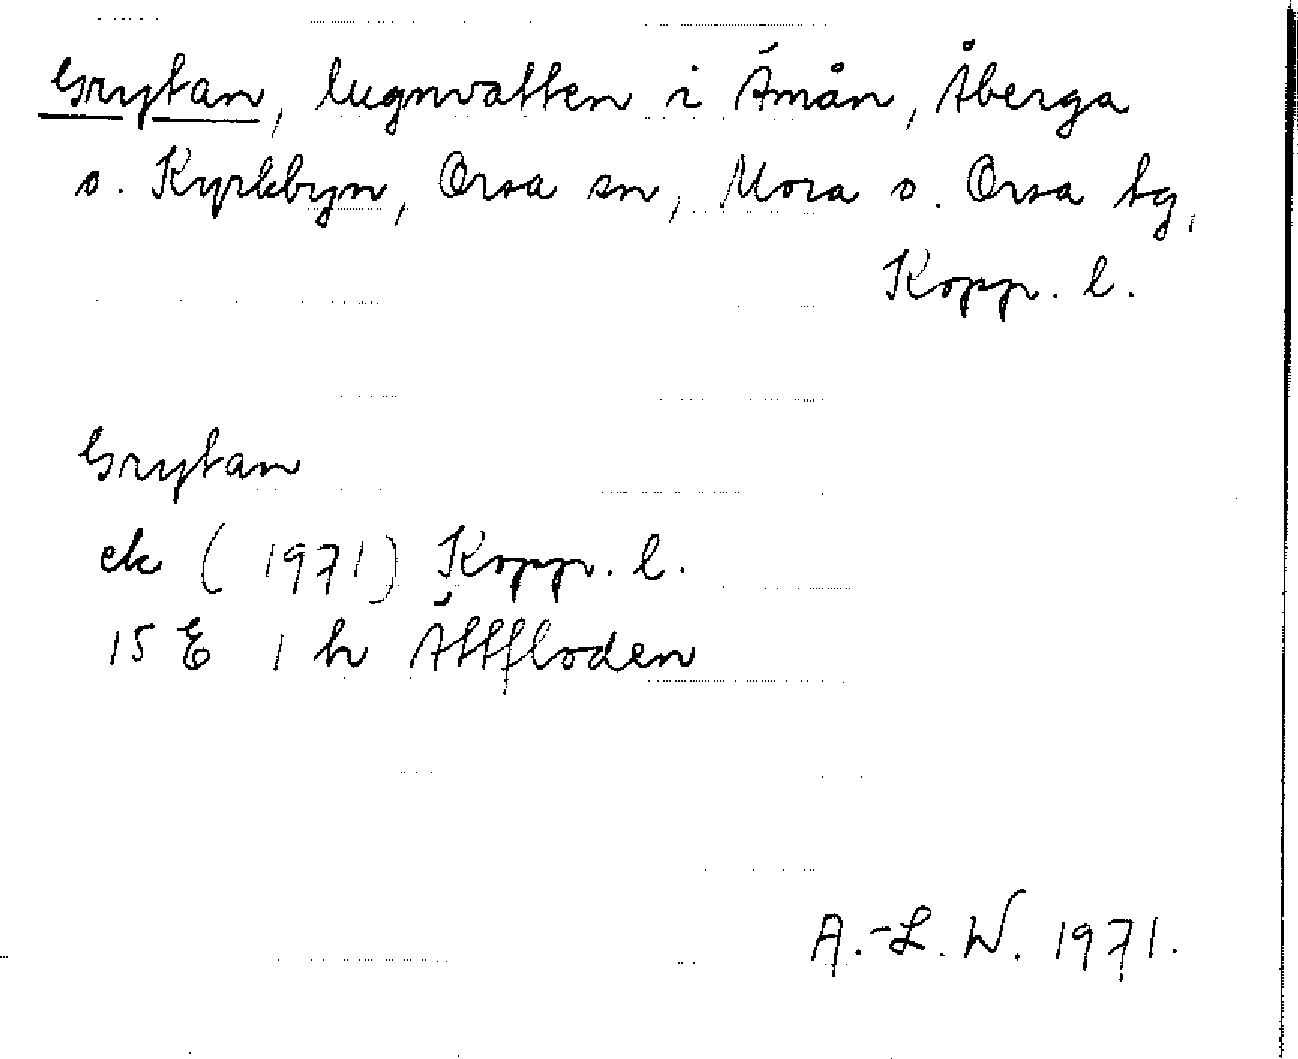 Grytan, lugnvatten i Ämån, Åberga
o. Kyrkbyn, Orsa sn, Mora o. Orsa tg,
Kopp. l.
Grytan
ek (1971) Kopp. l.
15 E 1 h Ättfloden
A.-L. W. 1971.